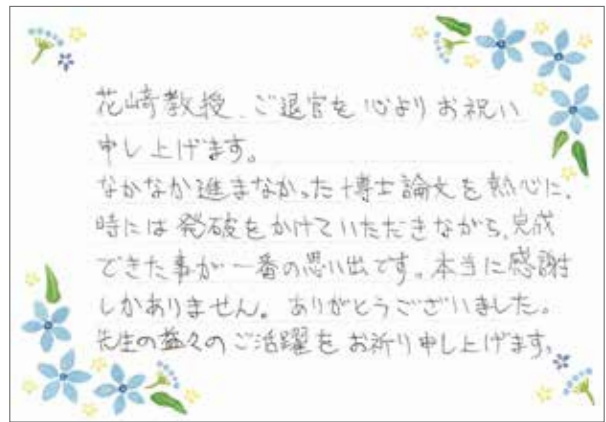 花崎教授、ご退官を心よりお祝い
申し上げます。
なかなか進まなかった博士論文を熱心に、
時には発破をかけていただきながら、完成
できた事が一番の思い出です。本当に感謝
しかありません。ありがとうございました。
先生の益々のご活躍をお祈り申し上げます。